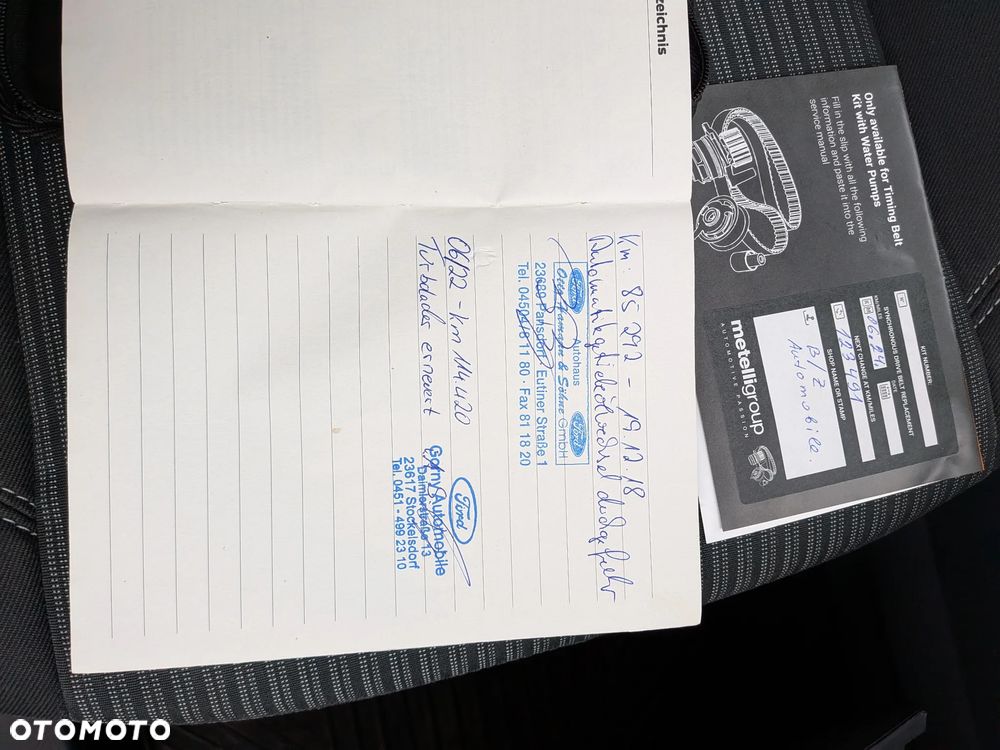 zeichnis
Km: 85 292 - 19.12.18
Automatikgetriebeölwechsel durchgeführt
Ford
Autohaus
Ford
& Söhne GmbH
23689 Pansdorf Eutiner Straße 1
Tel. 0450 81 11 80 · Fax 81 18 20
06/22 - km 114.420
Turbolader erneuert
Ford
Gorny Automobile
Daimlerstraße 13
23617 Stockelsdorf
Tel. 0451 - 499 23 10
Only available for Timing Belt
Kit with Water Pumps
Fill in the slip with all the following
information and paste it into the
service manual
KIT NUMBER:
SYNCHRONOUS DRIVE BELT REPLACEMENT
KM/MILES
DATE
06.24.
NEXT CHANGE AT KM/MILES
123491
SHOP NAME OR STAMP
B/Z
Automobile.
metelligroup
AUTOMOTIVE PASSION
OTOMOTO